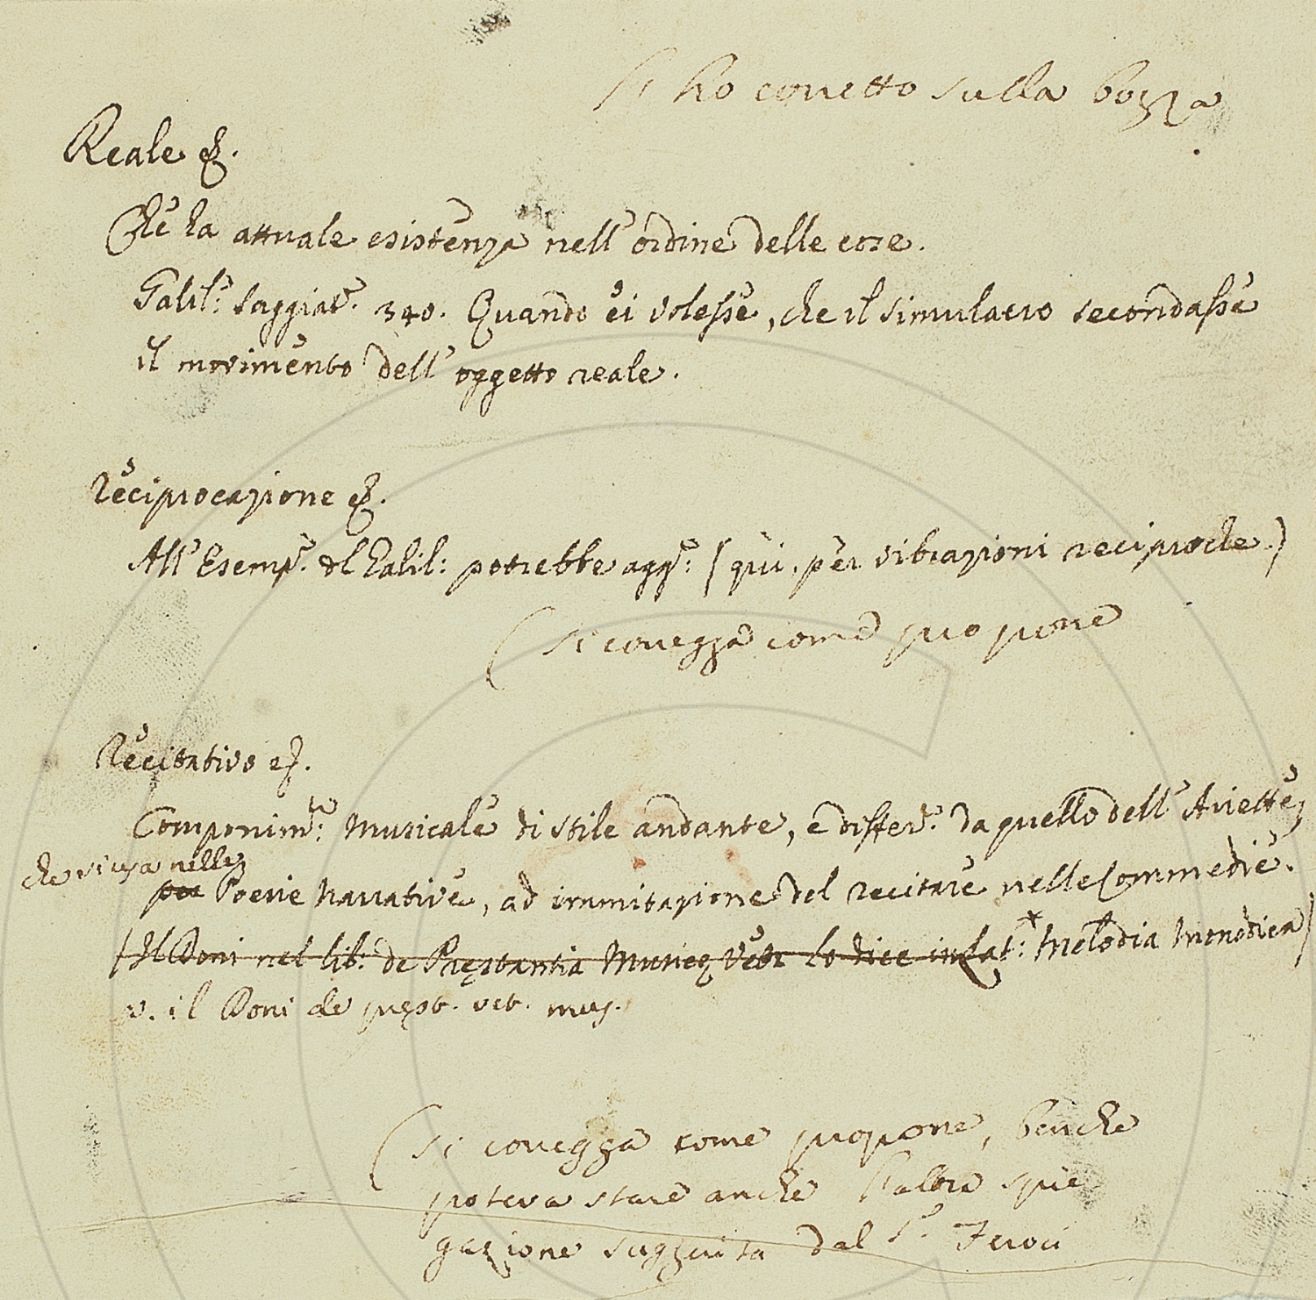 Si ho corretto sulla bozza
Reale &.
Che ha attuale esistenza nell' ordine delle cose.
Galil: Saggiat.e 340. Quando ei volesse, che il simulacro secondasse
il movimento dell' oggetto reale.
Reciprocazione &.
All' Esemp.o del Galil: potrebbe agg.e: (qui, per vibrazioni reciproche.)
(Si corregga come propone
Recitativo &.
Componim.to: Musicale di stile andante, e differ.e da quello dell' Ariette,
che si usa nelle
per Poesie Narrative, ad immitazione del recitare nelle Commedie.
(Il Doni nel lib: de Præstantia Musicæ Vete lo dice in Lat: Melodia Monodica)
v. il Doni de præst. vet. mus.
(Si corregga come propone, benche
poteva stare anche l'altra spie
gazione suggerita dal S.r Feroci